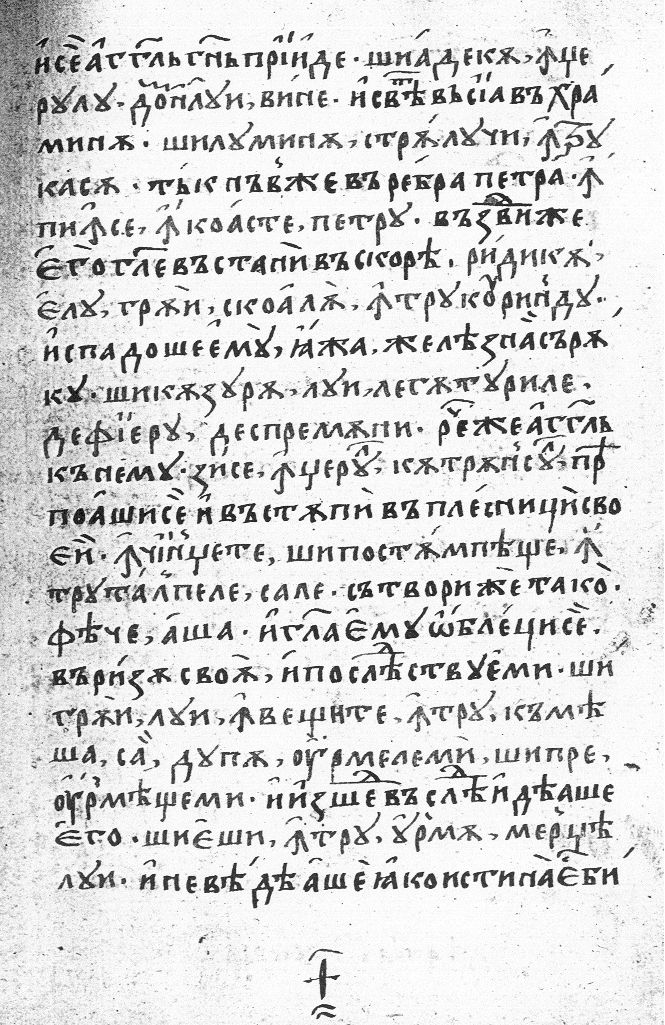 и҆сѐ а҆гг҃ль гн҃ь прїи́де · шиа́декѫ, ꙟ҆ѱе
рꙋлꙋ · до́мнлꙋи, вине · и҆ свѣ́т въсїа̀ въ хра́
минѫ · шилꙋминѫ, стрѫ́лꙋчи, ꙟ҆трꙋ
касѫ · тъ́кнъв же въ ре́бра петра̀ · ꙟ҆
пи ꙟ҆се, ꙟ҆ коа́сте, петрꙋ · въздви́же
є҆го̀ гл҃е въстанѝ въскорѣ̀ · ри́дикѫ,
є҆лꙋ, грѫи, скоалъ̀, ꙟ҆трꙋ кꙋриндꙋ ·
и҆ спадоше є҆мꙋ̀, ꙗ҆́жа, желѣзна̀ съ рѫ
кꙋ · шикѫзꙋрѫ, лꙋи, легѫтꙋриле,
дефїерꙋ, деспремѫни · рч҃е же а҆гг҃ль
къ немꙋ · зисе, ꙟ҆џерꙋл, кѫтрѫнсꙋл, пр
поа҆ши сѐ и҆ въстѫпѝ въ пле́сницѝ сво
є҆ѝ · ꙟ҆чинџете, шипостѫмпѣще, ꙟ҆
трꙋталпеле, сале · сътвори жѐ тако̀ ·
фѣче, а҆ша · и҆ гл҃а є҆мꙋ ѡ҆блеци сѐ ·
въ ри́зѫ своѫ̀, и҆ послѣ́дствꙋє҆ми · ши
грѫи, лꙋи, ꙟ҆вещите, ꙟ҆трꙋ, къмѣ
ша, са̀, дꙋпѫ, ѹ҆рмелемѝ, шипре,
ѹ҆рмѣщеми · и҆ и҆зше́д въслѣ́д и҆дѣаше
є҆го · шиє҆ши, ꙟ҆трꙋ, ꙋ҆рмѫ, мерџѣ
лꙋи · и҆ не вѣ́дѣ а҆шѐ ꙗ҆ко истина̀ є҆ст би